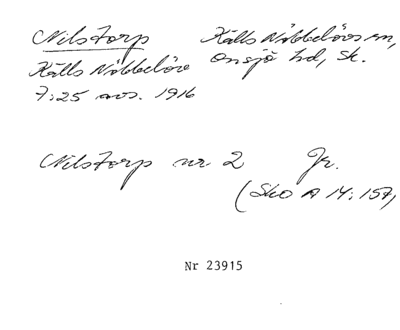 Nilstorp Källs Nöbbelövs sn,
Källs Nöbbelöv Onsjö hd, Sk.
7:25 avs. 1916
Nilstorp nr 2 Jr.
(Sko A 14:157,
Nr 23915